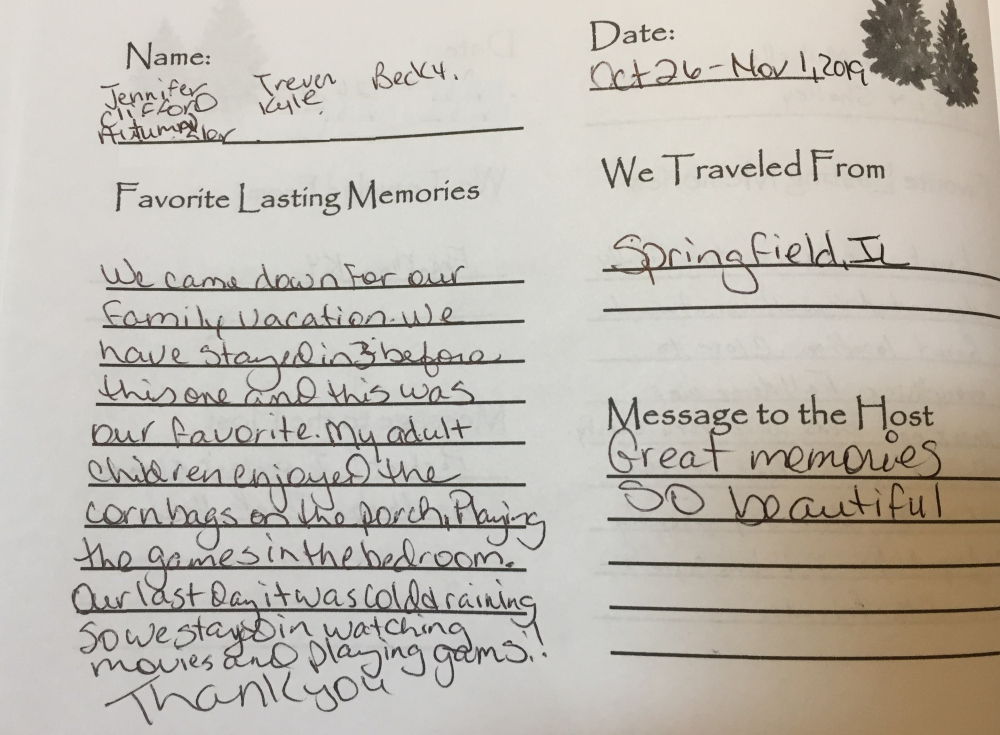 Name:
Jennifer Trever Becky.
Clifford Kyle
Autumn
Favorite Lasting Memories
We came down for our
family vacation. We
have stayed in 3 before
this one and this was
our favorite. My adult
children enjoyed the
cornbags on the porch, Playing
the games in the bedroom.
Our last day it was cold & raining
so we stayed in watching
movies and playing gams!!
Thank you
Date:
Oct 26 - Nov 1, 2019
We Traveled From
Springfield, IL
Message to the Host
Great memories
so beautiful